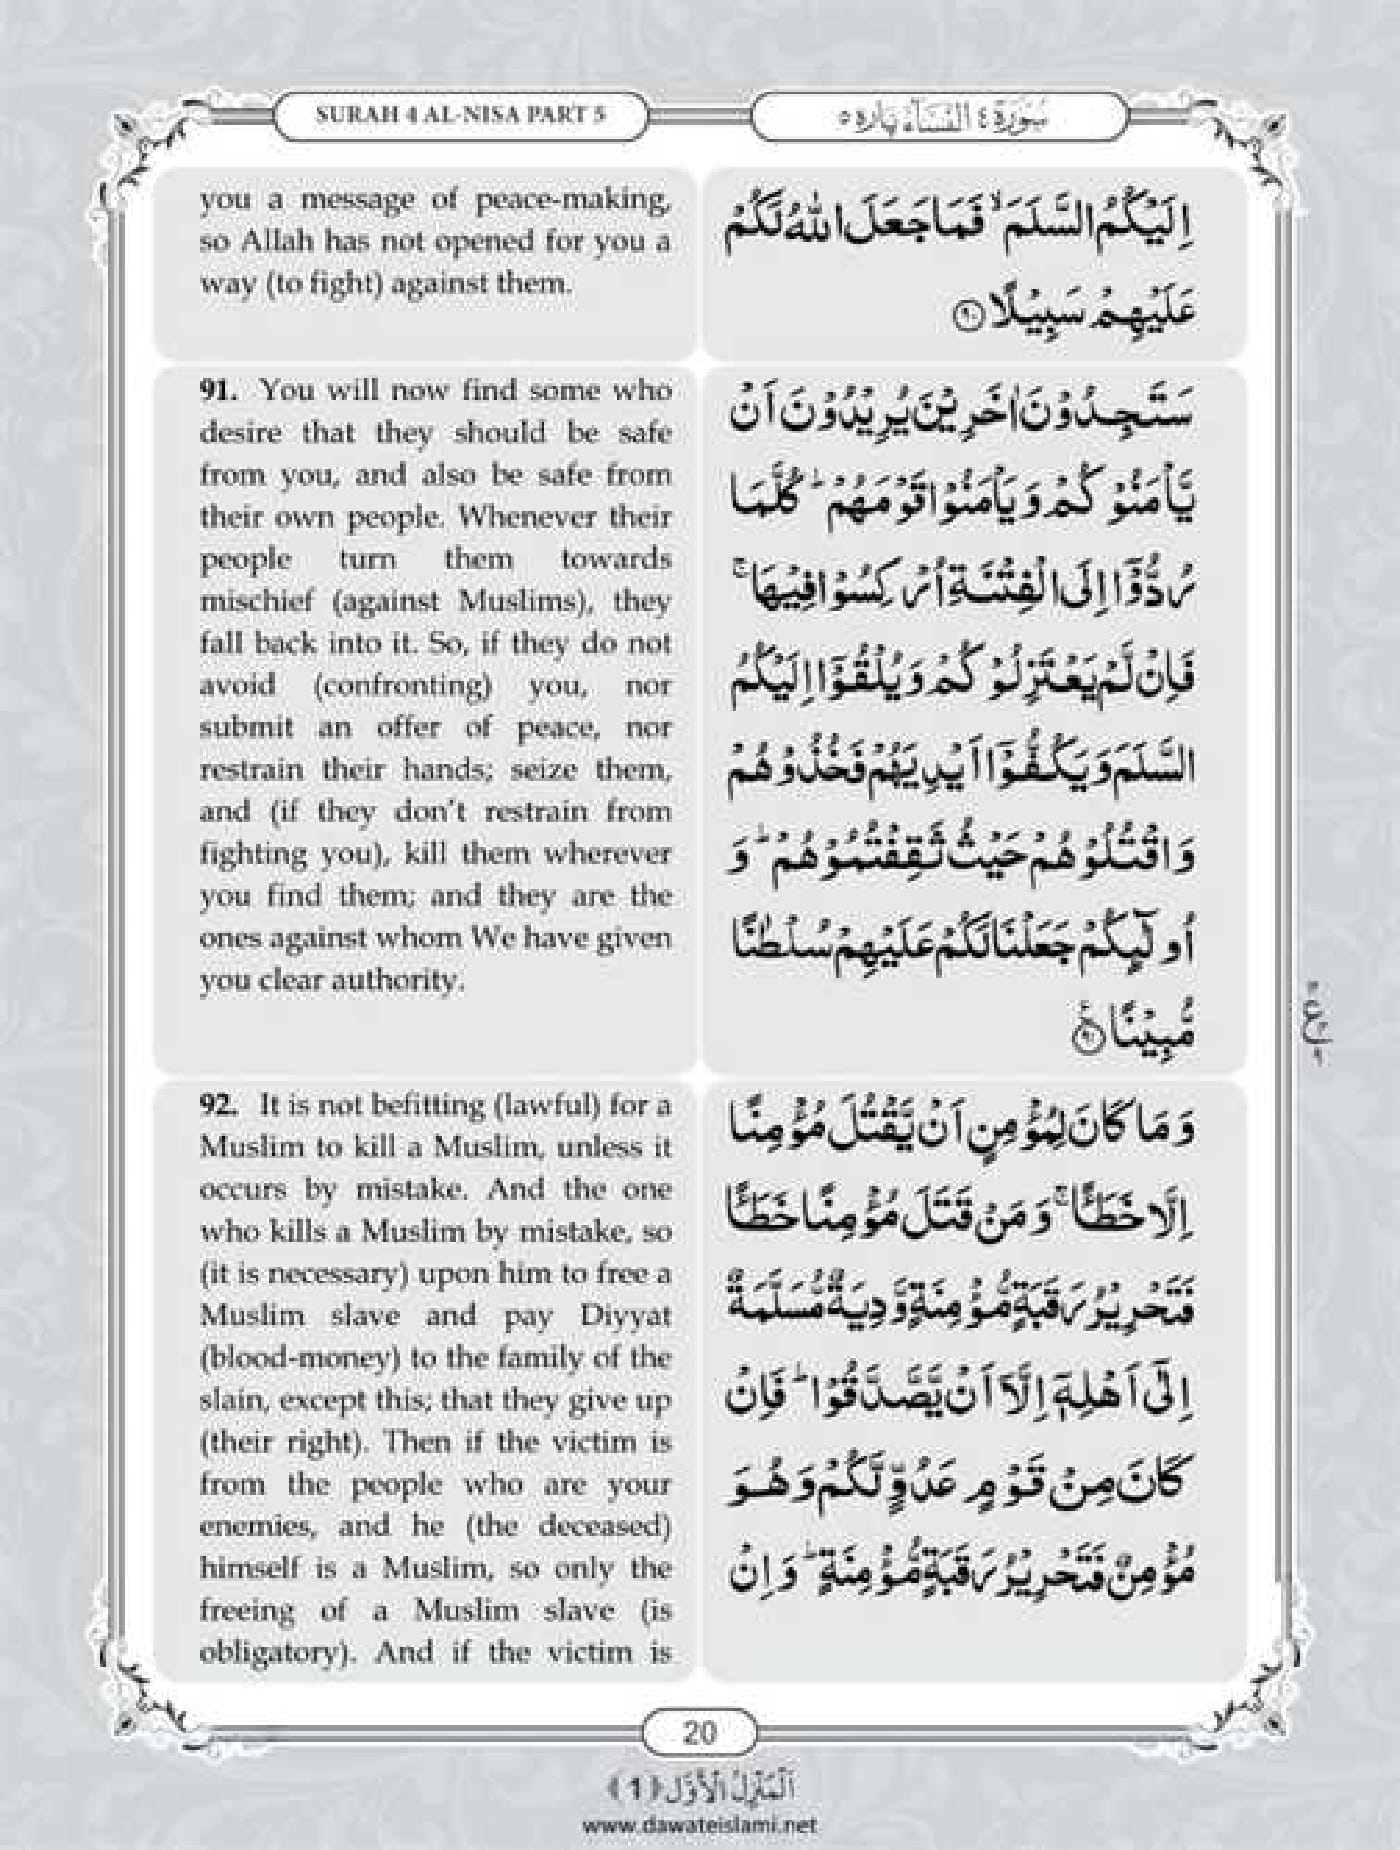 SURAH 4 AL-NISA PART 5
سُوْرَةُ ٤ النِّسَآء پارہ ٥
you a message of peace-making,
so Allah has not opened for you a
way (to fight) against them.
اِلَیْكُمُ السَّلَمَ ۙ فَمَا جَعَلَ اللّٰهُ لَكُمْ
عَلَیْهِمْ سَبِیْلًا ﴿۹۰﴾
91. You will now find some who
desire that they should be safe
from you, and also be safe from
their own people. Whenever their
people turn them towards
mischief (against Muslims), they
fall back into it. So, if they do not
avoid (confronting) you, nor
submit an offer of peace, nor
restrain their hands; seize them,
and (if they don't restrain from
fighting you), kill them wherever
you find them; and they are the
ones against whom We have given
you clear authority.
سَتَجِدُوْنَ اٰخَرِیْنَ یُرِیْدُوْنَ اَنْ
یَّاْمَنُوْكُمْ وَ یَاْمَنُوْا قَوْمَهُمْ ؕ كُلَّمَا
رُدُّوْۤا اِلَی الْفِتْنَةِ اُرْكِسُوْا فِیْهَا ۚ
فَاِنْ لَّمْ یَعْتَزِلُوْكُمْ وَ یُلْقُوْۤا اِلَیْكُمُ
السَّلَمَ وَ یَكُفُّوْۤا اَیْدِیَهُمْ فَخُذُوْهُمْ
وَ اقْتُلُوْهُمْ حَیْثُ ثَقِفْتُمُوْهُمْ ؕ وَ
اُولٰٓىِٕكُمْ جَعَلْنَا لَكُمْ عَلَیْهِمْ سُلْطٰنًا
مُّبِیْنًا ﴿۹۱﴾
92. It is not befitting (lawful) for a
Muslim to kill a Muslim, unless it
occurs by mistake. And the one
who kills a Muslim by mistake, so
(it is necessary) upon him to free a
Muslim slave and pay Diyyat
(blood-money) to the family of the
slain, except this; that they give up
(their right). Then if the victim is
from the people who are your
enemies, and he (the deceased)
himself is a Muslim, so only the
freeing of a Muslim slave (is
obligatory). And if the victim is
وَ مَا كَانَ لِمُؤْمِنٍ اَنْ یَّقْتُلَ مُؤْمِنًا
اِلَّا خَطَــٴًـا ۚ وَ مَنْ قَتَلَ مُؤْمِنًا خَطَــٴًـا
فَتَحْرِیْرُ رَقَبَةٍ مُّؤْمِنَةٍ وَّ دِیَةٌ مُّسَلَّمَةٌ
اِلٰۤی اَهْلِهٖۤ اِلَّاۤ اَنْ یَّصَّدَّقُوْا ؕ فَاِنْ
كَانَ مِنْ قَوْمٍ عَدُوٍّ لَّكُمْ وَ هُوَ
مُؤْمِنٌ فَتَحْرِیْرُ رَقَبَةٍ مُّؤْمِنَةٍ ؕ وَ اِنْ
20
اَلْمَنْزِلُ الْاَوَّل ﴿1﴾
www.dawateislami.net